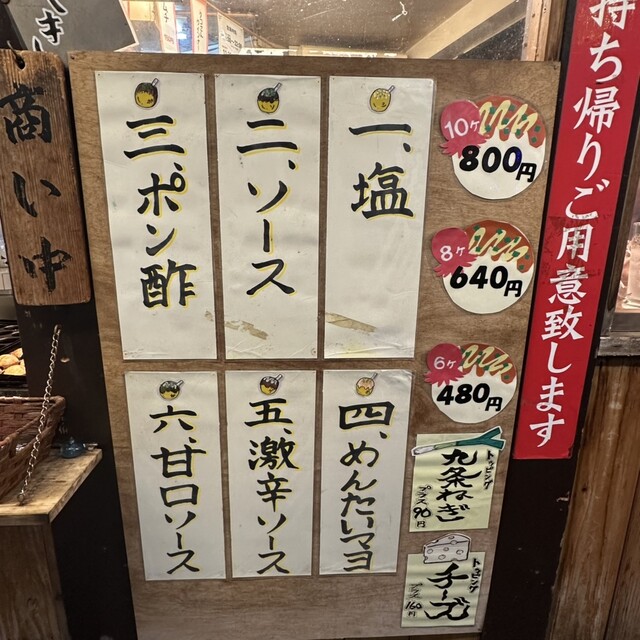 一、塩
二、ソース
三、ポン酢
四、めんたいマヨ
五、激辛ソース
六、甘口ソース
10ヶ
800円
8ヶ
640円
6ヶ
480円
トッピング
九条ねぎ
プラス90円
トッピング
チーズ
プラス160円
持ち帰りご用意致します
商い中